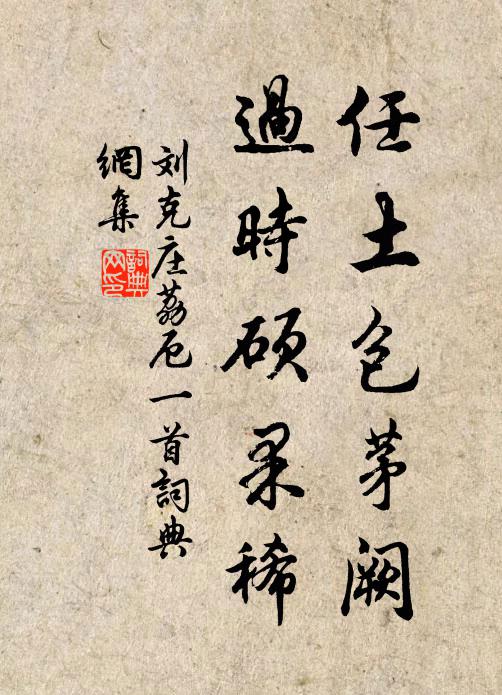 任土包茅阙
過時硕果稀
刘克庄荔厄一首詞典
網集
詞典网印